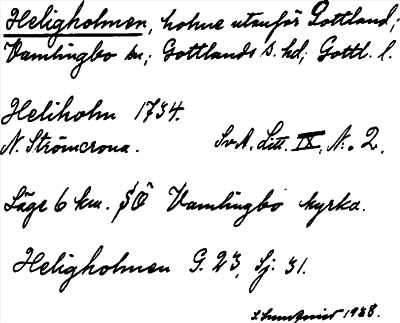 Heligholmen, holme utanför Gottland;
Vamlingbo sn; Gottlands s. hd; Gottl. l.
Heliholm 1734.
N. Strömcrona. SvA. Litt. IX, N:o 2.
Läge 6 km. SO Vamlingbo kyrka.
Heligholmen G. 23, Sj: 31.
1938.